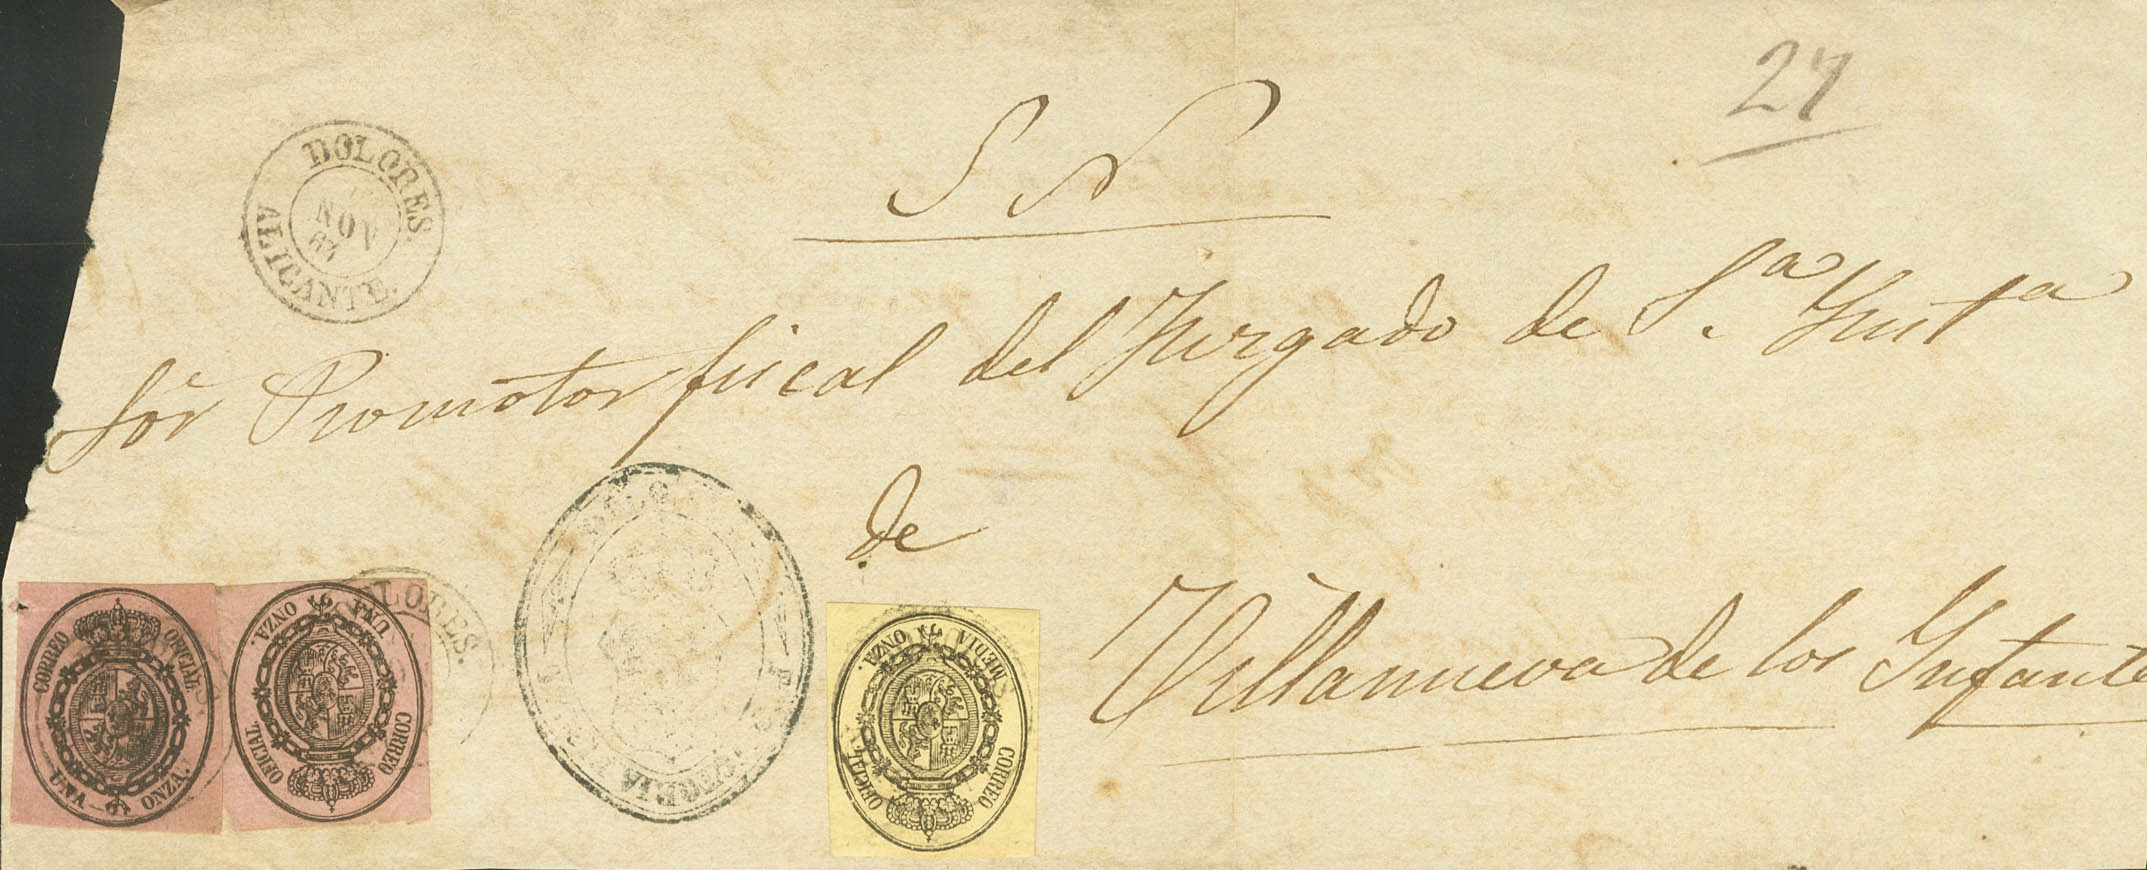 27
S N
DOLORES.
NOV
ALICANTE.
Sor Promotor fiscal del Jurgado de Sa. Insta
de
Villanueva de los Infante
CORREO OFICIAL
UNA ONZA.
CORREO OFICIAL
UNA ONZA.
DOLORES.
CORREO OFICIAL
MEDIA ONZA.